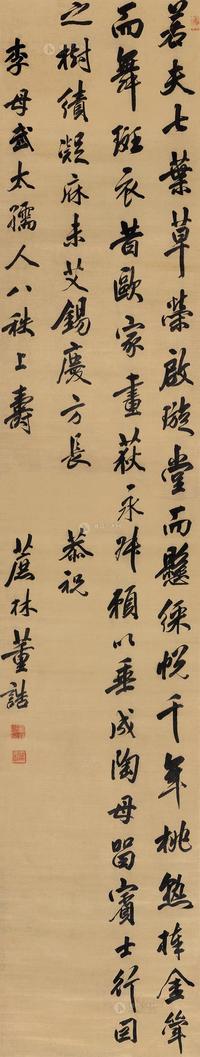 若夫七叶草荣啟璇堂而懸綵帨千年桃熟捧金觴
而舞斑衣昔歐家畫荻永叔賴以垂成陶母留賓士行因
之樹績凝庥未艾錫慶方長
恭祝
李母武太孺人八秩上壽
蔗林董誥